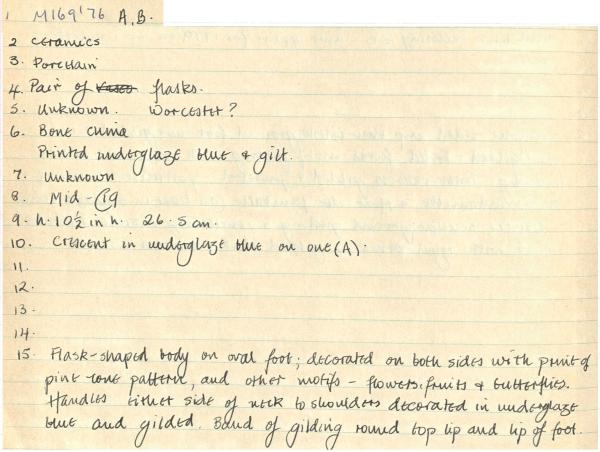 1 M169'76 A,B.
2 Ceramics
3. Porcelain
4. Pair of vases flasks.
5. Unknown. Worcester?
6. Bone China
Printed underglaze blue & gilt.
7. Unknown
8. Mid-C19
9. h. 10½ in h. 26.5 cm.
10. Crescent in underglaze blue on one (A).
11.
12.
13.
14.
15. Flask-shaped body on oval foot; decorated on both sides with print of
pine cone pattern, and other motifs - flowers, fruits & butterflies.
Handles either side of neck to shoulders decorated in underglaze
blue and gilded. Band of gilding round top lip and lip of foot.